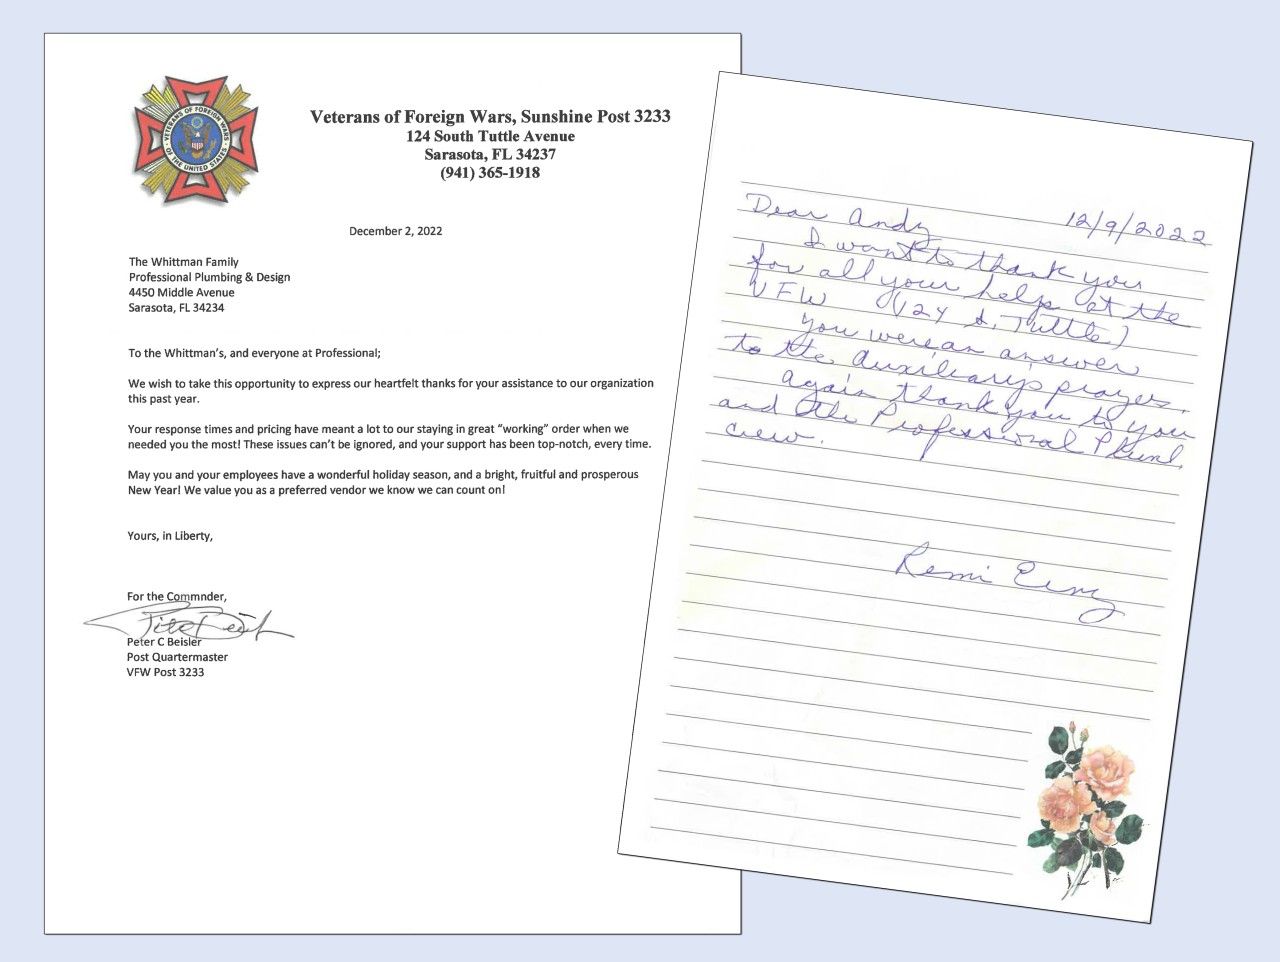 VETERANS OF FOREIGN WARS
OF THE UNITED STATES
Veterans of Foreign Wars, Sunshine Post 3233
124 South Tuttle Avenue
Sarasota, FL 34237
(941) 365-1918
December 2, 2022
The Whittman Family
Professional Plumbing & Design
4450 Middle Avenue
Sarasota, FL 34234
To the Whittman's, and everyone at Professional;
We wish to take this opportunity to express our heartfelt thanks for your assistance to our organization
this past year.
Your response times and pricing have meant a lot to our staying in great “working” order when we
needed you the most! These issues can't be ignored, and your support has been top-notch, every time.
May you and your employees have a wonderful holiday season, and a bright, fruitful and prosperous
New Year! We value you as a preferred vendor we know we can count on!
Yours, in Liberty,
For the Commnder,
Peter C Beisler
Post Quartermaster
VFW Post 3233
12/9/2022
Dear Andy
I want to thank you
for all your help at the
VFW (124 S. Tuttle)
You were an answer
to the Auxiliary's prayer.
Again thank you to you
and the Professional Plum.
crew.
Remi